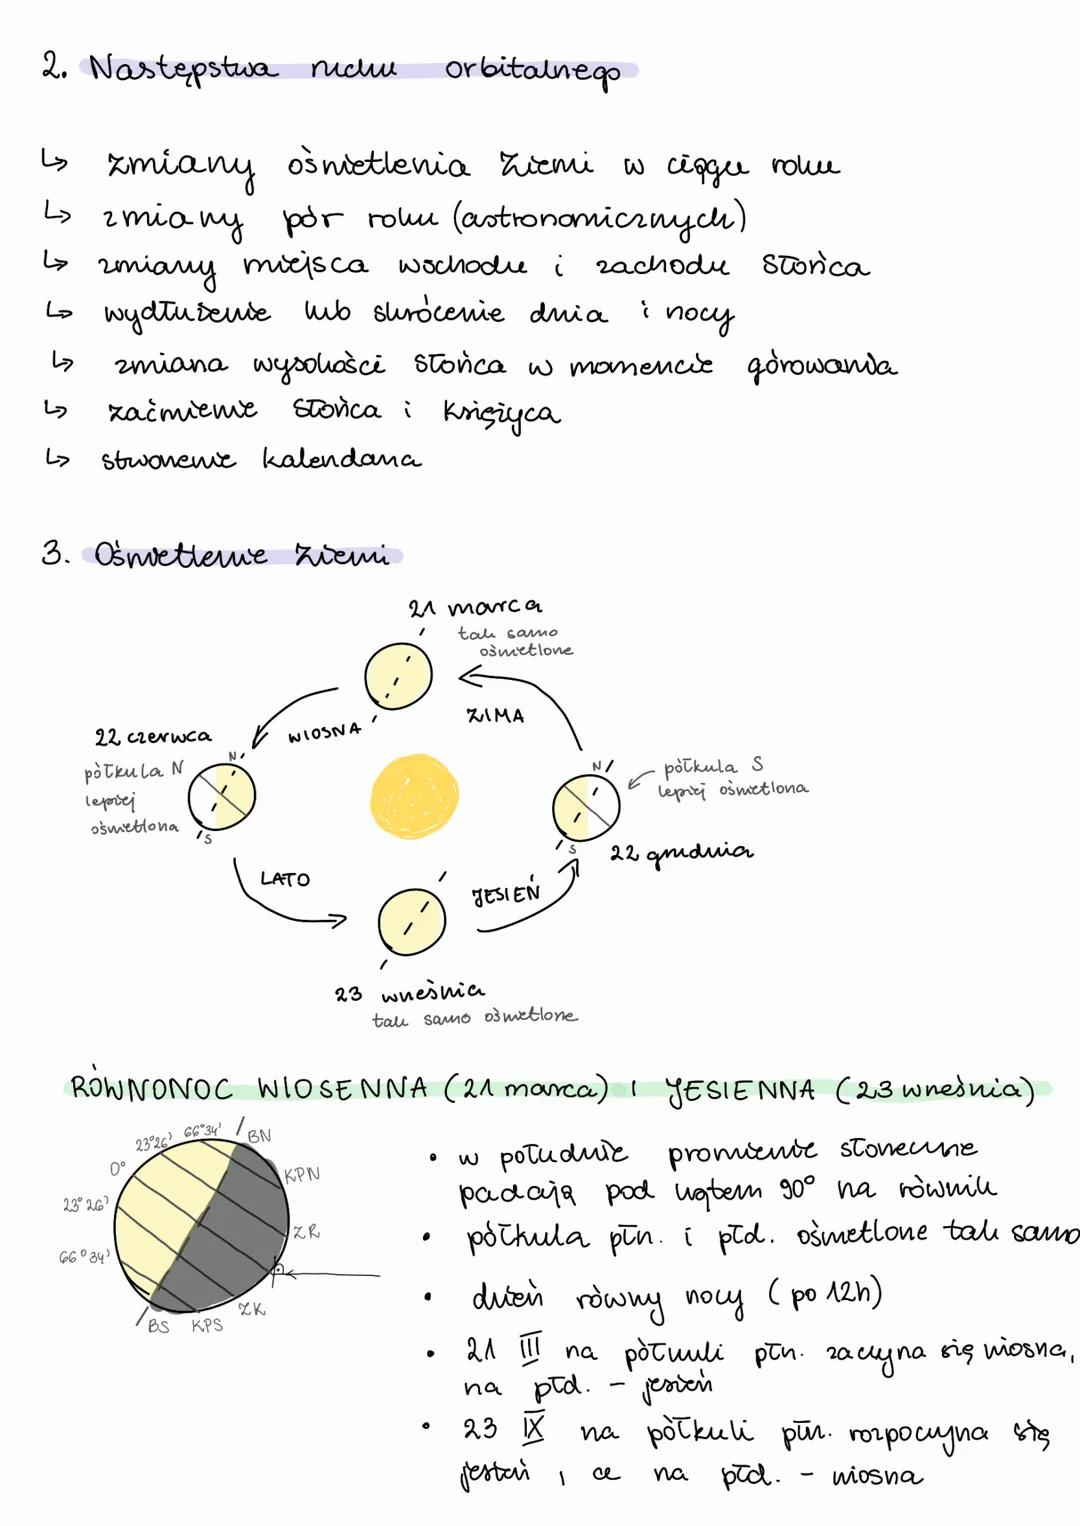 2. Następstwa ruchu orbitalnego
↳ zmiany oświetlenia Ziemi w ciągu roku
↳ zmiany pór roku (astronomicznych)
↳ zmiany miejsca wschodu i zachodu Słońca
↳ wydłużenie lub skrócenie dnia i nocy
↳ zmiana wysokości Słońca w momencie górowania
↳ zaćmienie Słońca i Księżyca
↳ stworzenie kalendarza
3. Oświetlenie Ziemi
21 marca
tak samo
oświetlone
ZIMA
WIOSNA
22 czerwca
półkula N
lepiej
oświetlona
N
S
N
S
półkula S
lepiej oświetlona
22 grudnia
LATO
JESIEŃ
23 września
tak samo oświetlone
RÓWNONOC WIOSENNA (21 marca) I JESIENNA (23 września)
66°34'
BN
23°26'
KPN
0°
23°26'
ZR
66°34'
ZK
BS KPS
• w południe promienie słoneczne
padają pod kątem 90° na równik
• półkula płn. i płd. oświetlone tak samo
• dzień równy nocy (po 12h)
• 21 III na półkuli płn. zaczyna się wiosna,
na płd. - jesień
• 23 IX na półkuli płn. rozpoczyna się
jesień, ce na płd. - wiosna